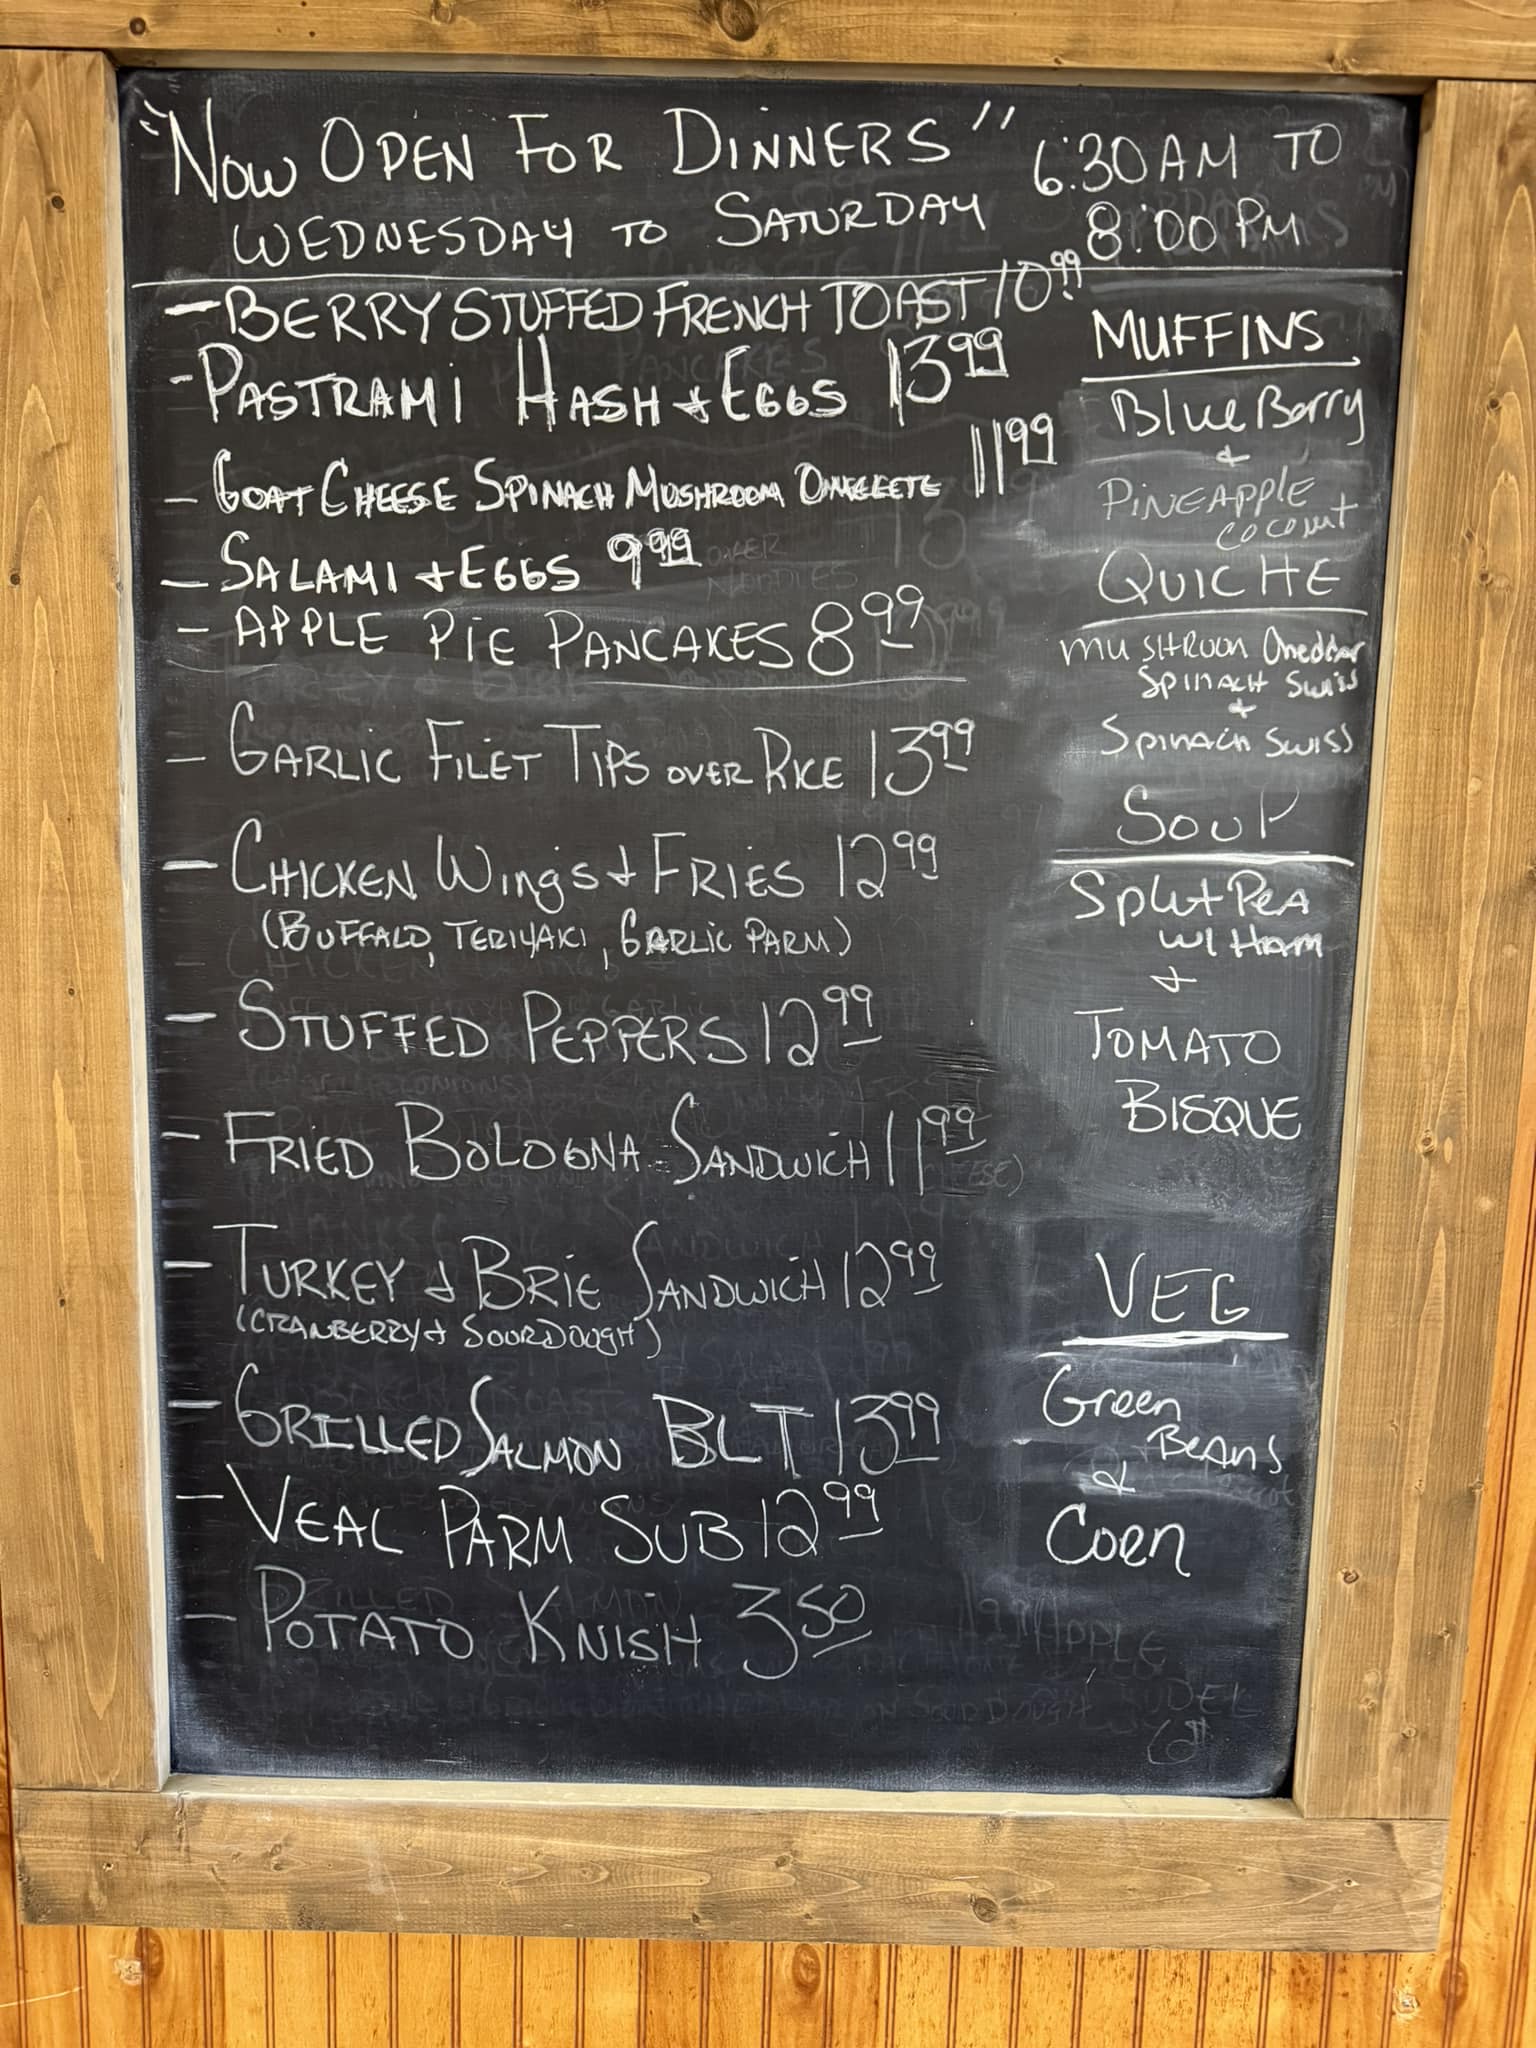 "Now Open For Dinners"
Wednesday to Saturday
6:30 AM TO
8:00 PM
- BERRY STUFFED FRENCH TOAST 10.99
- PASTRAMI HASH & EGGS 13.99
- GOAT CHEESE SPINACH MUSHROOM OMELETE 11.99
- SALAMI & EGGS 9.99
- APPLE PIE PANCAKES 8.99
- GARLIC FILET TIPS OVER RICE 13.99
- CHICKEN Wings & FRIES 12.99
(BUFFALO, TERIYAKI, GARLIC PARM)
- STUFFED PEPPERS 12.99
- FRIED BOLOGNA SANDWICH 11.99
- TURKEY & BRIE SANDWICH 12.99
(CRANBERRY & SOURDOUGH)
- GRILLED SALMON BLT 13.99
- VEAL PARM SUB 12.99
- POTATO KNISH 3.50
MUFFINS
BlueBerry
&
PINEAPPLE
COCONUT
QUICHE
MUSHROOM Cheddar
SPINACH SWISS
&
SPINACH SWISS
SOUP
Split PEA
W/ HAM
&
TOMATO
BISQUE
VEG
Green
BEANS
&
Corn